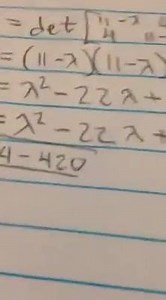 = det [11-λ
4 11
= (11-λ)(11-λ)
= λ² - 22λ +
= λ² - 22λ +
4 - 420